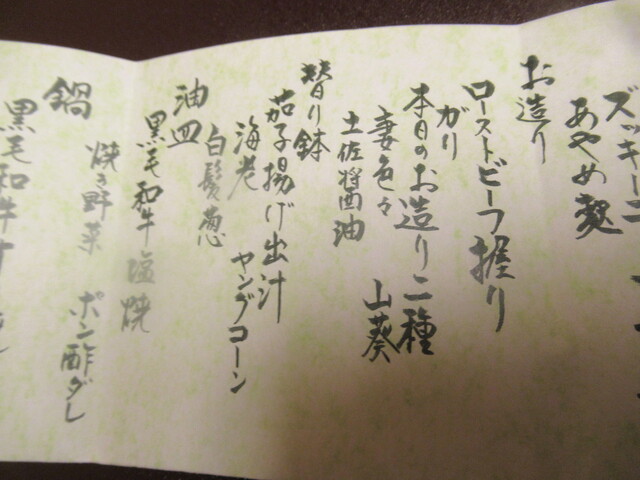 ズッキーニ
あやめ麩
お造り
ローストビーフ握り
ガリ
本日のお造り二種
妻色々 山葵
土佐醤油
替り鉢
茄子揚げ出汁
海老 ヤングコーン
白髪葱
油皿
黒毛和牛塩焼
焼き野菜 ポン酢ダレ
鍋
黒毛和牛